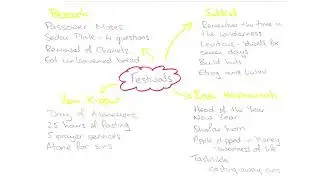 Pesach
Passover Moses
Sedar Plate - 4 questions
Removal of Chametz
Eat unleavened bread
Sukkot
Remember the time in
the wilderness
Leviticus - dwell for
seven days
Build huts
Etrog and Lulav
Festivals
Yom Kippur
Day of Atonement
25 hours of fasting
5 prayer services
Atone for sins
Rosh Hashannah
Head of the Year
New Year
Shofar horn
Apple dipped in honey
- sweetness of life
Tashlich
casting away sins